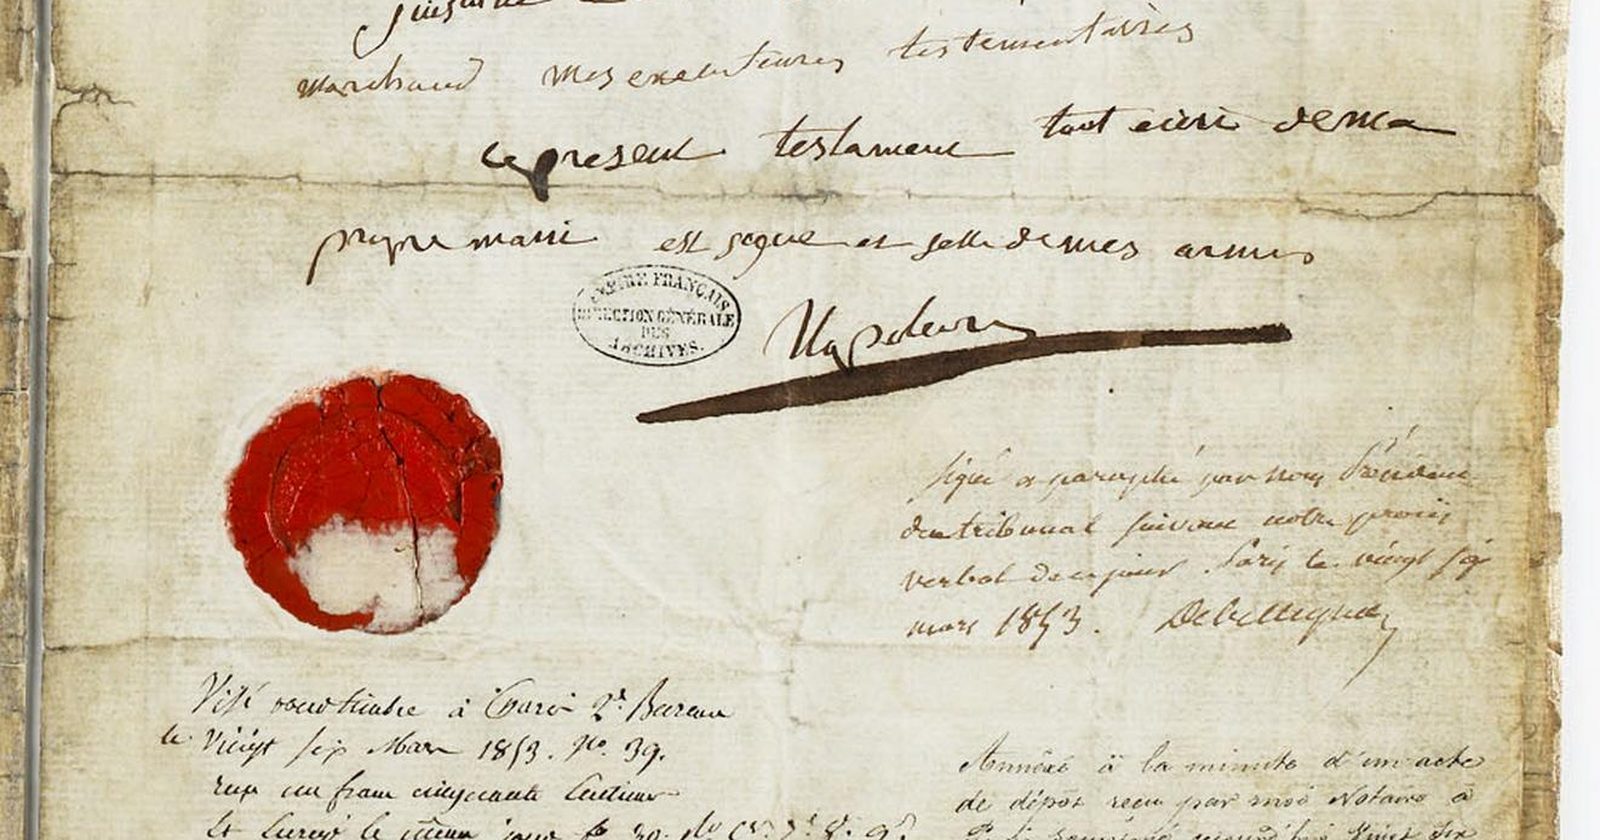 Marchand mes executeures testementaires
ce present testament tout ecrit de ma
propre main est signé et sellé de mes armes
EMPIRE FRANÇAIS
DIRECTION GÉNÉRALE
DES
ARCHIVES.
Napoleon
Signé et paraphé par nous Président
du tribunal suivant notre procès
verbal de ce jour Paris le vingt six
mars 1853. Debelleyme
Visé pour timbre à Paris 2e Bureau
le Vingt six Mars 1853. No. 39.
reçu un franc cinquante Centimes
Annéxé à la minute d'un acte
de dépôt reçu par moi Notaire à